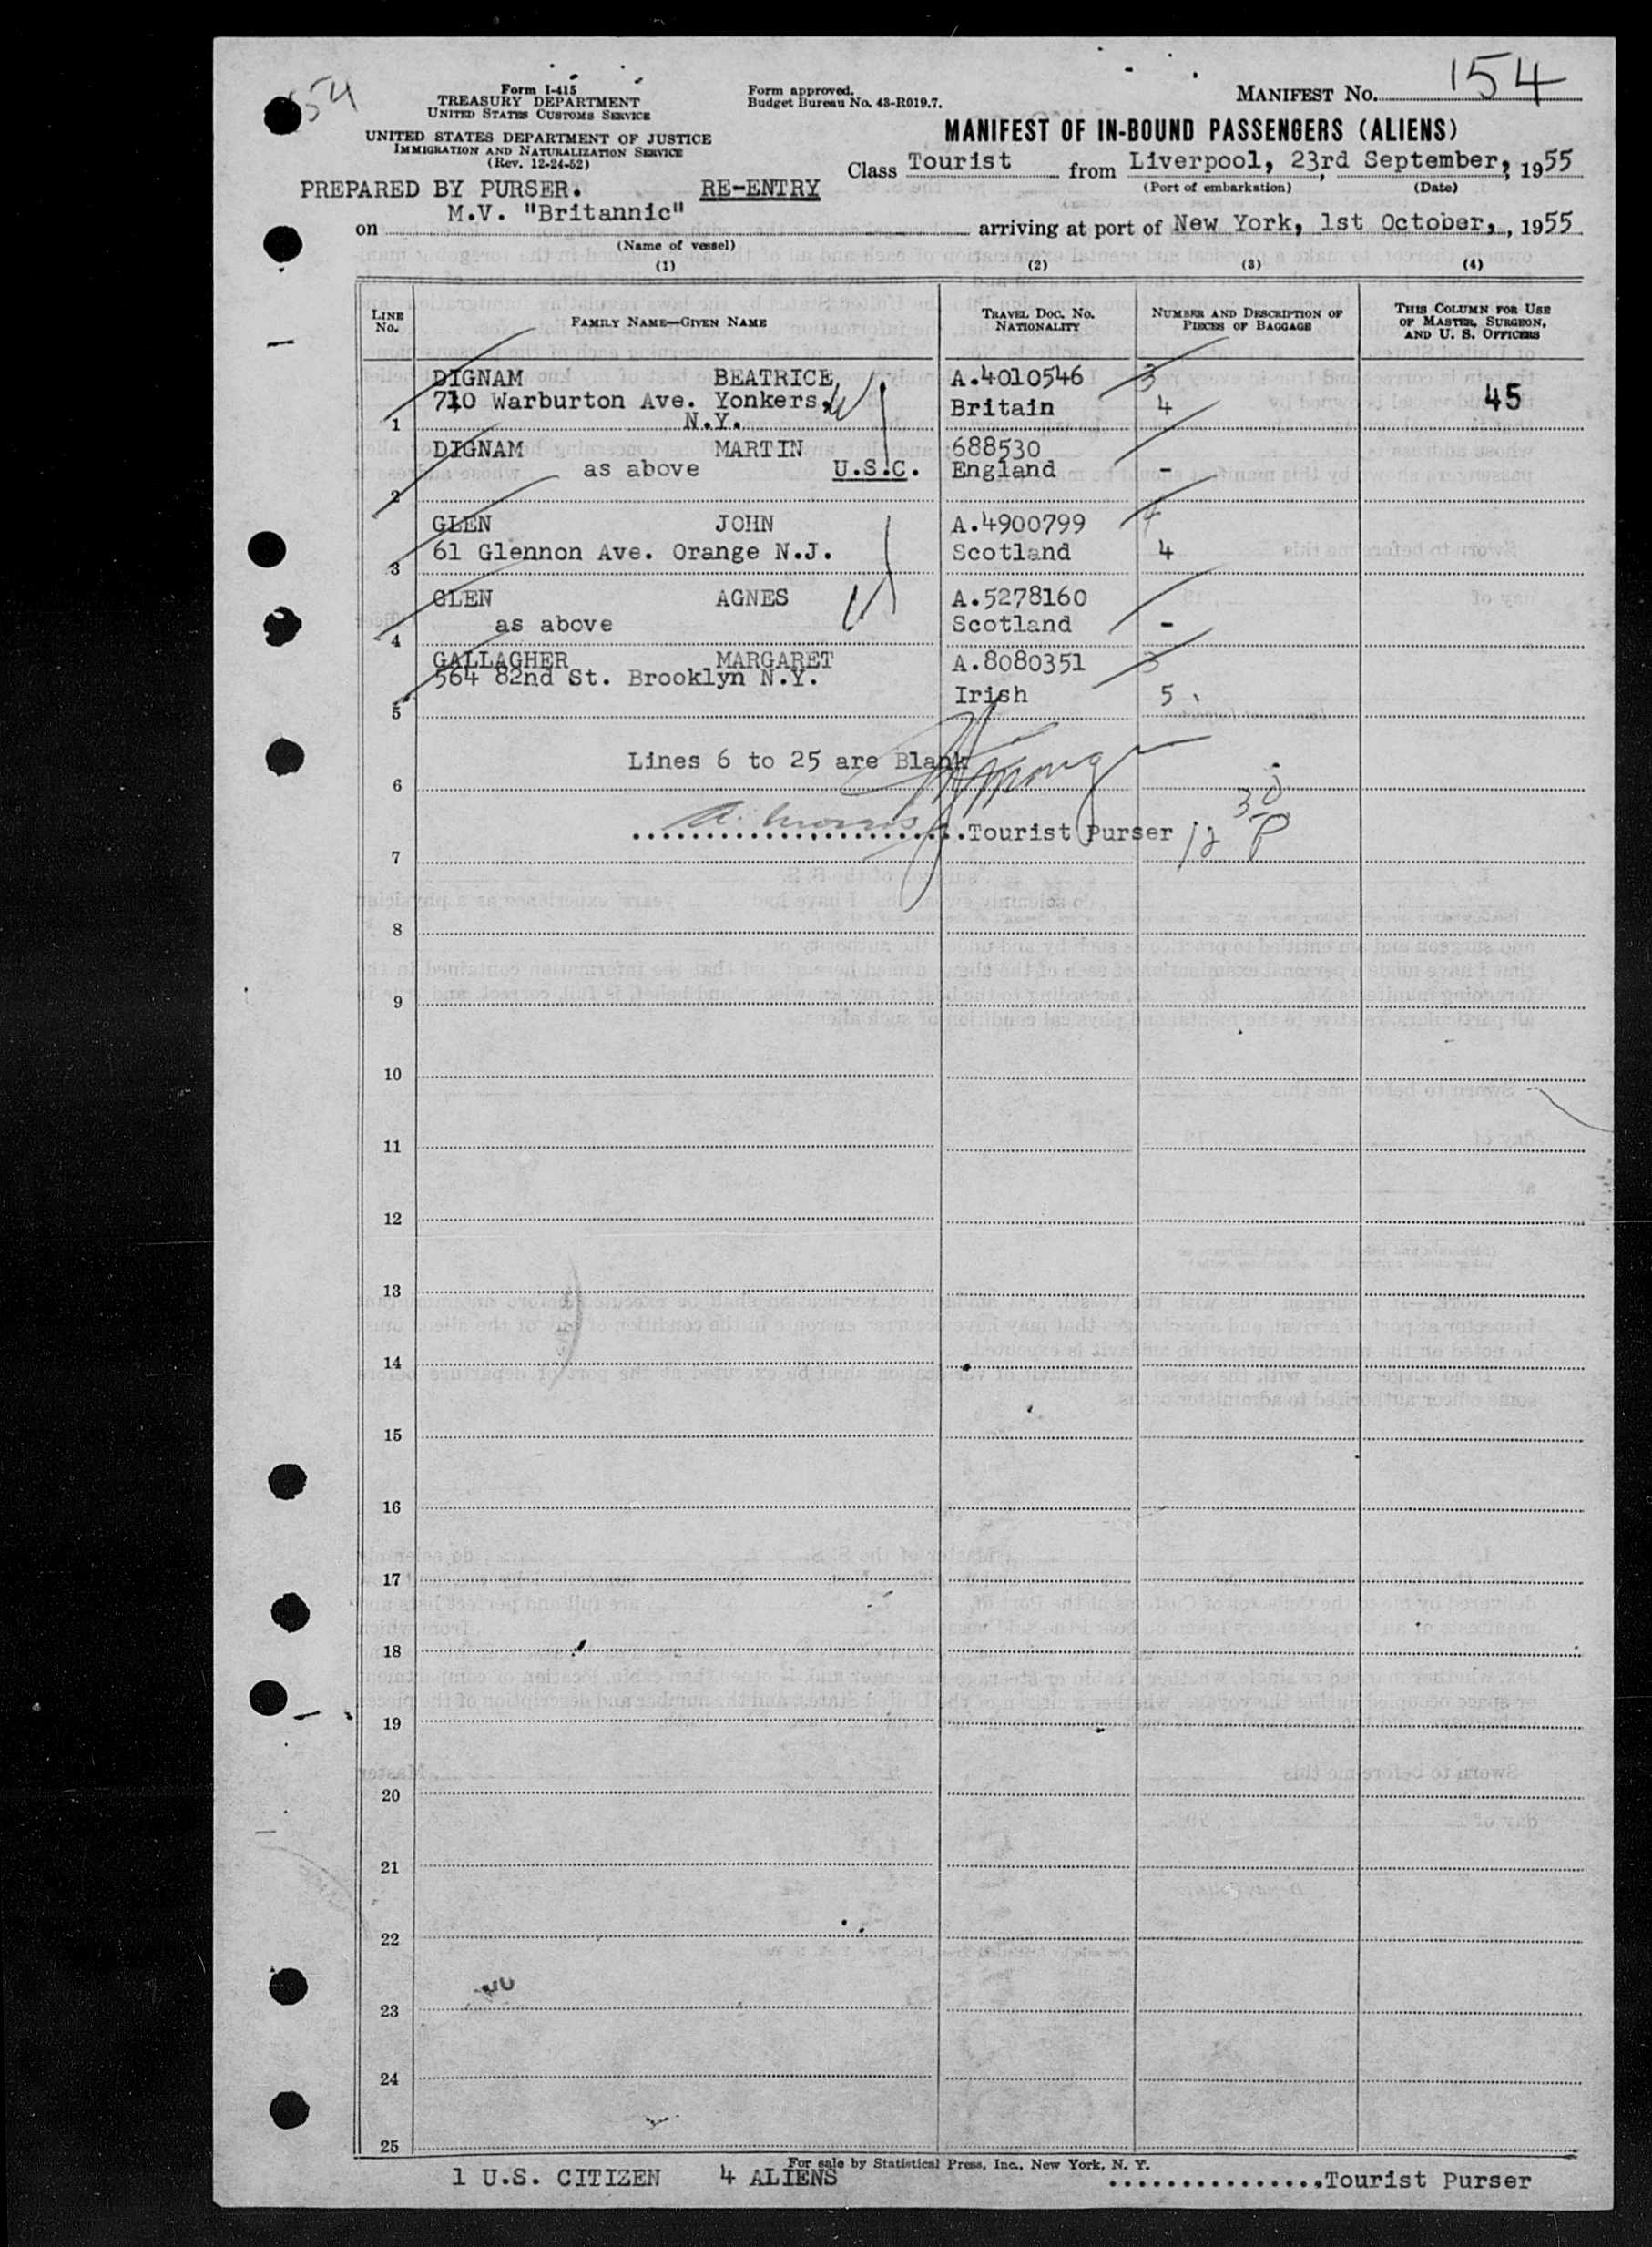 154
Form I-415
TREASURY DEPARTMENT
UNITED STATES CUSTOMS SERVICE
UNITED STATES DEPARTMENT OF JUSTICE
IMMIGRATION AND NATURALIZATION SERVICE
(Rev. 12-24-52)
Form approved.
Budget Bureau No. 43-R019.7.
MANIFEST No. 154
MANIFEST OF IN-BOUND PASSENGERS (ALIENS)
Class Tourist from Liverpool, 23rd September, 1955
(Port of embarkation) (Date)
PREPARED BY PURSER. RE-ENTRY
on M.V. "Britannic" arriving at port of New York, 1st October, , 1955
(Name of vessel)
(1) (2) (3) (4)
LINE No. FAMILY NAME—GIVEN NAME TRAVEL DOC. NO. NATIONALITY NUMBER AND DESCRIPTION OF PIECES OF BAGGAGE THIS COLUMN FOR USE OF MASTER, SURGEON, AND U. S. OFFICERS
DIGNAM BEATRICE, A.4010546 3
710 Warburton Ave. Yonkers. Britain 4 45
1 N.Y.
DIGNAM MARTIN 688530
as above U.S.C. England -
2
GLEN JOHN A.4900799
61 Glennon Ave. Orange N.J. Scotland 4
3
GLEN AGNES A.5278160
as above Scotland -
4
GALLAGHER MARGARET A.8080351 3
564 82nd St. Brooklyn N.Y.
Irish 5
5
Lines 6 to 25 are Blank
6
A. Morris Tourist Purser 12 30 P
7
8
9
10
11
12
13
14
15
16
17
18
19
20
21
22
23
24
25
For sale by Statistical Press, Inc., New York, N. Y.
1 U.S. CITIZEN 4 ALIENS ...............Tourist Purser